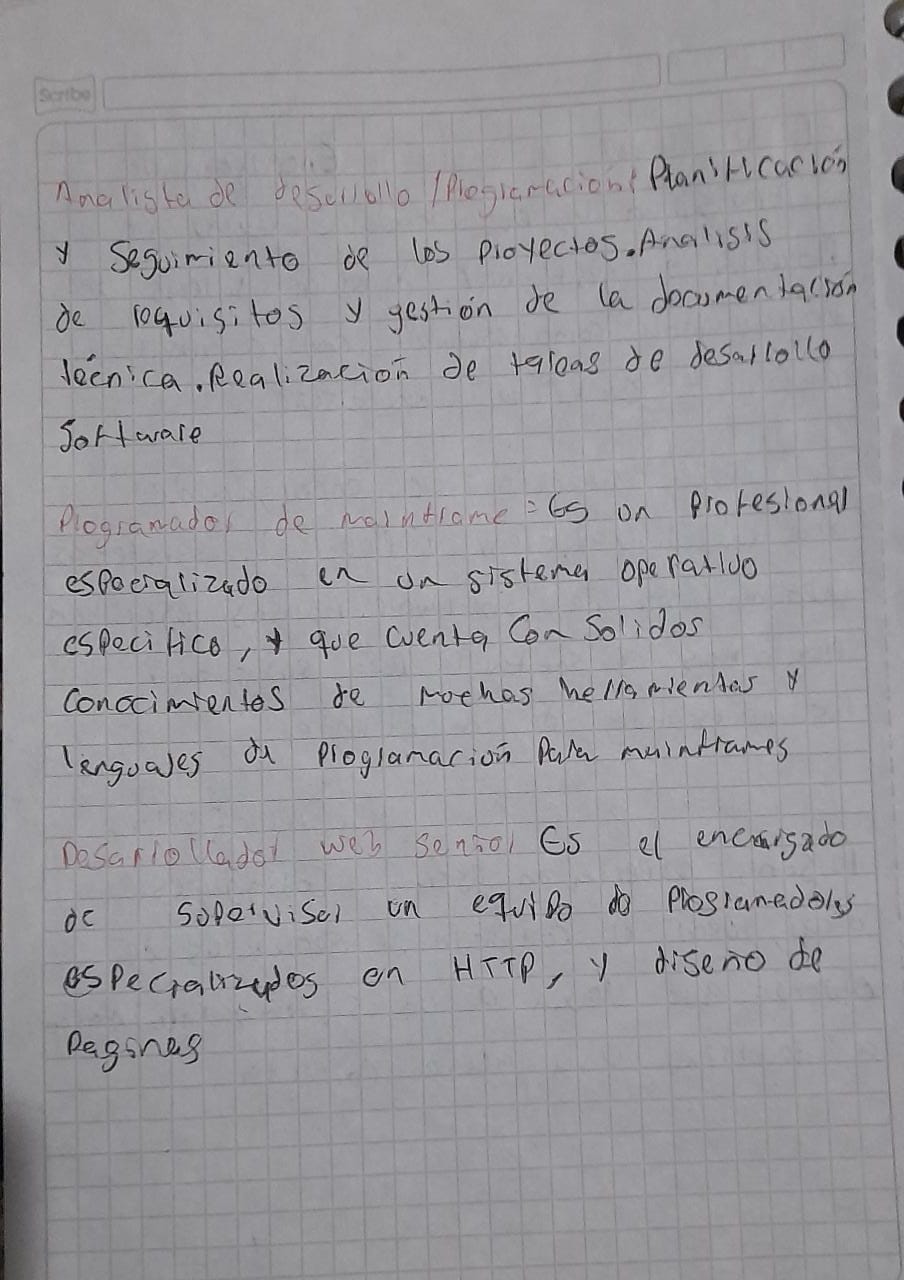 Scribe
Analista de desarrollo /Programacion: Planificación
y Seguimiento de los proyectos. Analisis
de requisitos y gestión de la documentación
técnica. Realización de tareas de desarrollo
Software
Programador de mainframe: Es un profesional
especializado en un sistema operativo
especifico, y que cuenta con solidos
conocimientos de muchas herramientas y
lenguajes de programación para mainframes
Desarrollador web senior Es el encargado
de supervisar un equipo de programadores
especializados en HTTP, y diseño de
paginas